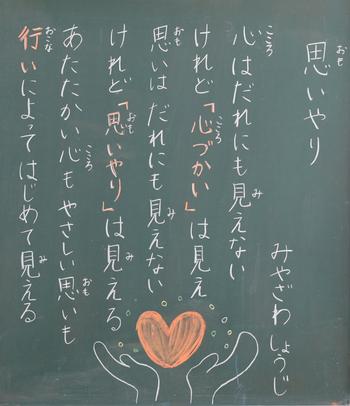 思いやり
みやざわ しょうじ
心はだれにも見えない
けれど「心づかい」は見え
思いは だれにも見えない
けれど「思いやり」は見える
あたたかい心も やさしい思いも
行いによって はじめて見える